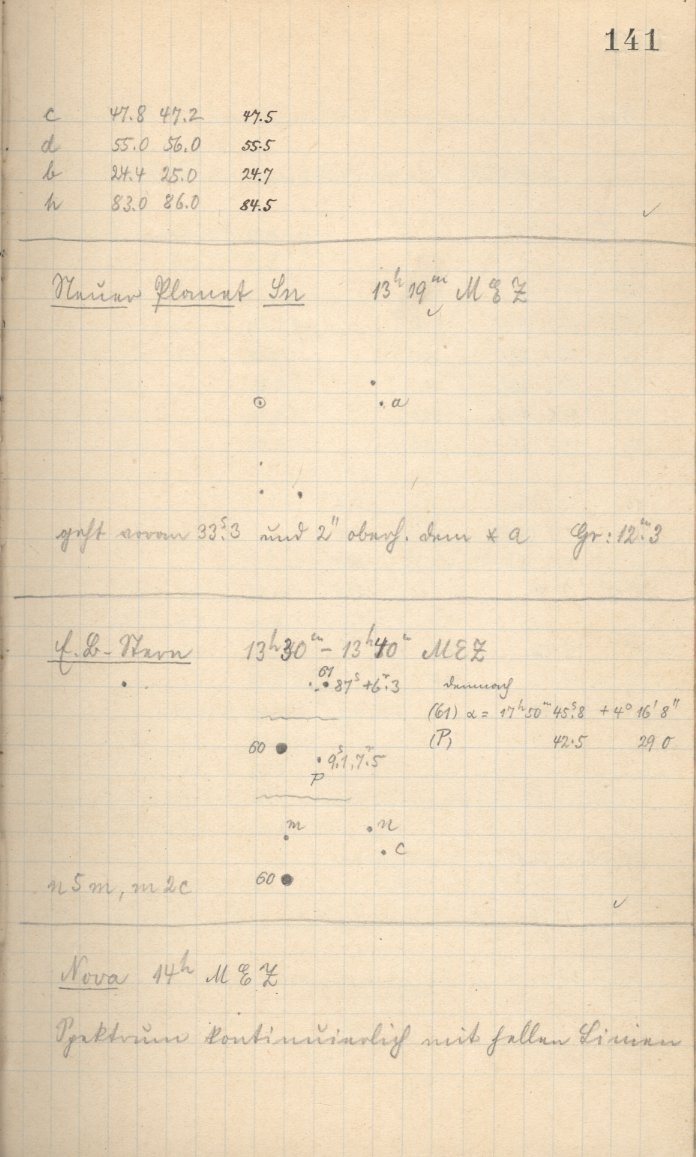 141
c 47.8 47.2 47.5
d 55.0 56.0 55.5
b 24.4 25.0 24.7
h 83.0 86.0 84.5
Neuer Planet Sn 13ʰ 19ᵐ M E Z
a
geht voran 33ˢ.3 und 2" oberh. dem * a Gr: 12ᵐ.3
E. B-Stern 13ʰ30ᵐ - 13ʰ40ᵐ MEZ
61
87ˢ +6'.3 demnach
(61) α = 17ʰ 50ᵐ 45ˢ.8 + 4° 16' 8"
60 (P) 42.5 29 0
9ˢ.1, 7'.5
P
m n
c
n 5 m, m 2 c 60
Nova 14ʰ M E Z
Spektrum kontinuierlich mit hellen Linien